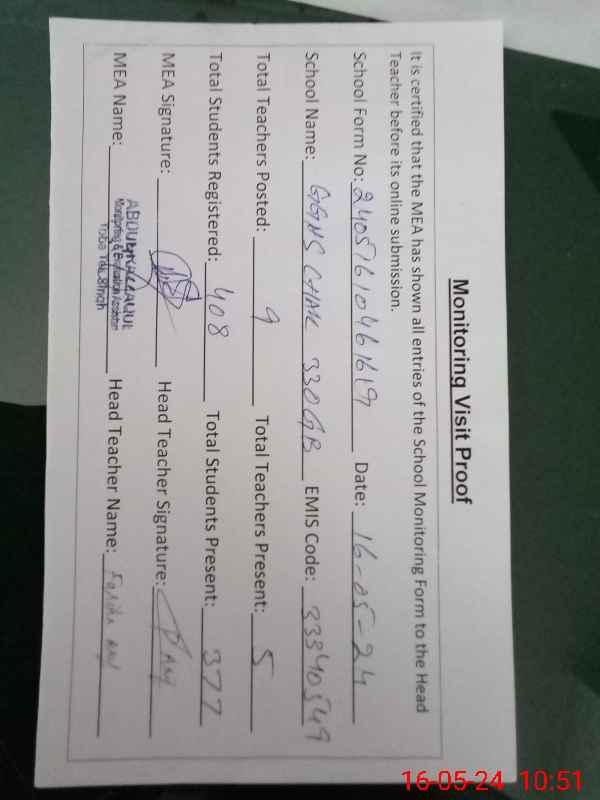 Monitoring Visit Proof
It is certified that the MEA has shown all entries of the School Monitoring Form to the Head
Teacher before its online submission.
School Form No: 24051610461619 Date: 16-05-24
School Name: GGNS CHAK 330GB EMIS Code: 33340549
Total Teachers Posted: 9 Total Teachers Present: 5
Total Students Registered: 408 Total Students Present: 377
MEA Signature: Head Teacher Signature:
MEA Name: Head Teacher Name:
Monitoring & Evaluation Assistant
Toba Tek Singh
16-05-24 10:51